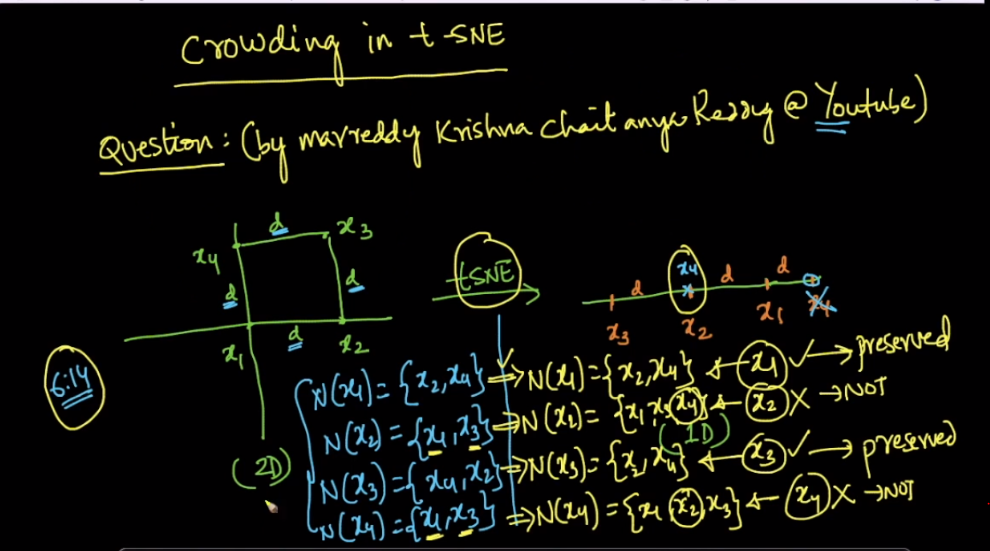 Crowding in t-SNE
Question: (by marreddy Krishna Chaitanya Reddy @ Youtube)
d
x3
x4
d
d
d
x1
x2
(2D)
6:14
tSNE
x4
d
d
d
x3
x2
x1
x4
(1D)
N(x1) = {x2, x4} ⇒ N(x1) = {x2, x4} ← x1 ✓ → preserved
N(x2) = {x1, x3} ⇒ N(x2) = {x1, x3 x4} ← x2 X → NOT
N(x3) = {x4, x2} ⇒ N(x3) = {x2, x4} ← x3 ✓ → preserved
N(x4) = {x1, x3} ⇒ N(x4) = {x1 x2, x3} ← x4 X → NOT